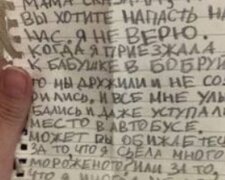 МАМА СКАЗАЛА
ВЫ ХОТИТЕ НАПАСТЬ НА
НАС. Я НЕ ВЕРЮ.
КОГДА Я ПРИЕЗЖАЛА
К БАБУШКЕ В БОБРУЙ
ТО МЫ ДРУЖИЛИ И НЕ ССО
РИЛИСЬ, И ВСЕ МНЕ УЛЫ
БАЛИСЬ И ДАЖЕ УСТУПАЛИ
МЕСТО В АВТОБУСЕ.
МОЖЕТ ВЫ ОБИЖАЕТЕСЬ
ЗА ТО ЧТО Я СЪЕЛА МНОГО
МОРОЖЕНОГО ИЛИ ЗА ТО,
ЧТО Я